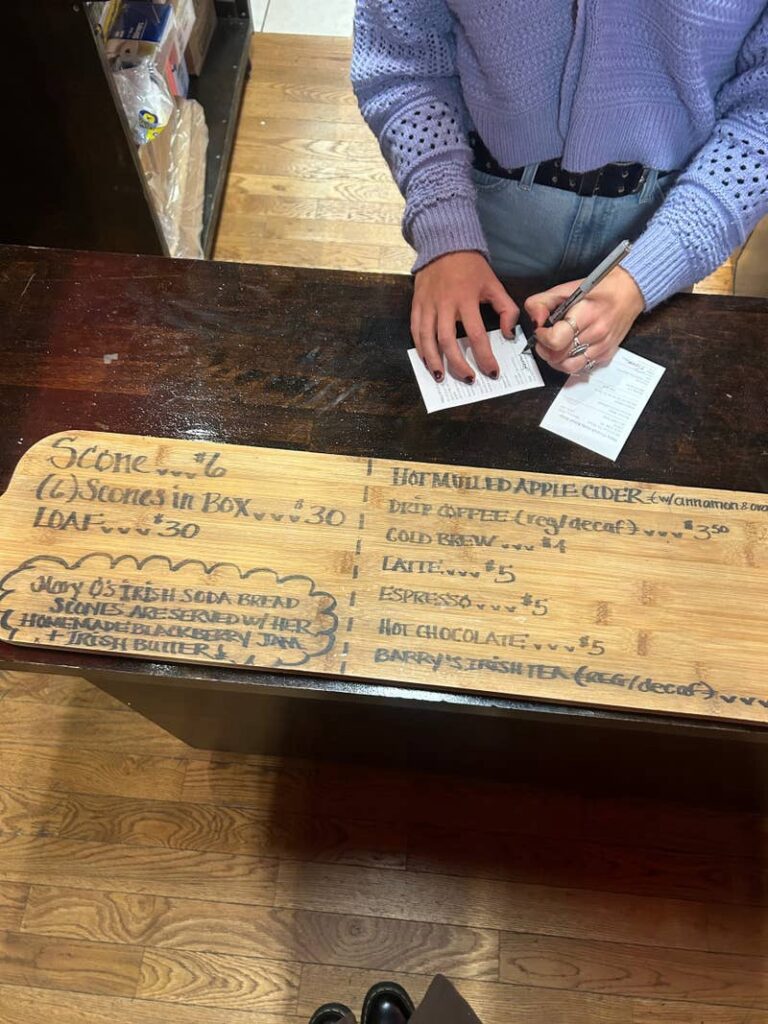 Scone 𝆺 $6
(6) Scones in Box $30
LOAF $30
Mary O's IRISH SODA BREAD
SCONES ARE SERVED W/ HER
HOMEMADE BLACKBERRY JAM
+ IRISH BUTTER
HOT MULLED APPLE CIDER (w/cinnamon &
DRIP COFFEE (reg/decaf) $3.50
COLD BREW $4
LATTE $5
ESPRESSO $5
HOT CHOCOLATE $5
BARRY'S IRISH TEA (REG/decaf)